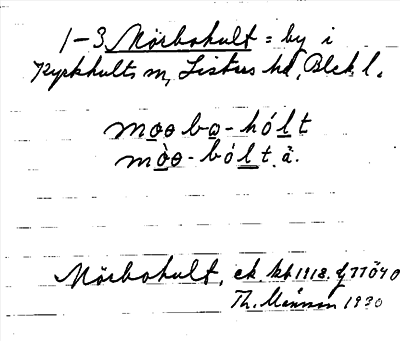 1-3 Mörbokult = by i
Kyrkhults sn, Listers hd, Blek l.
moɵ bo - hól t
mòɵ - ból t. ä.
Mörbokult, ek. kb 1918. f 77Ö40
Th. Månsson 1930